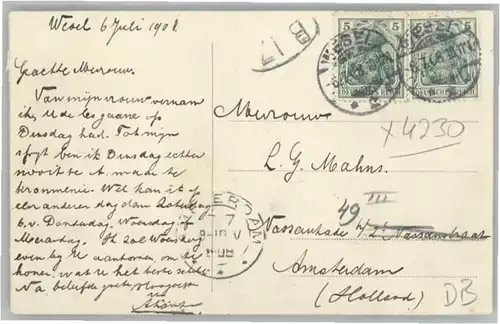 Wesel 6 Juli 1908
Geachte Mevrouw.
Van mijn vrouw vernam
ik, U de les gaarne op
Dinsdag had. Tot mijn
spijt ben ik Dinsdag echter
nooit te A. maar te
Wel kan ik op
een anderen dag dan Zaterdag
b.v. Donderdag, Woensdag of
Maandag. Ik zal Woensdag
even bij U aankomen om de
het beste
Na beleefde groeten
B17
5 5
WESEL
6.7.08
DEUTSCHES REICH DEUTSCHES REICH
Mevrouw
x4230
L. G. Mahns.
49 III
Nassaukade h/d. Nassaustraat
Amsterdam
(Holland)
DB